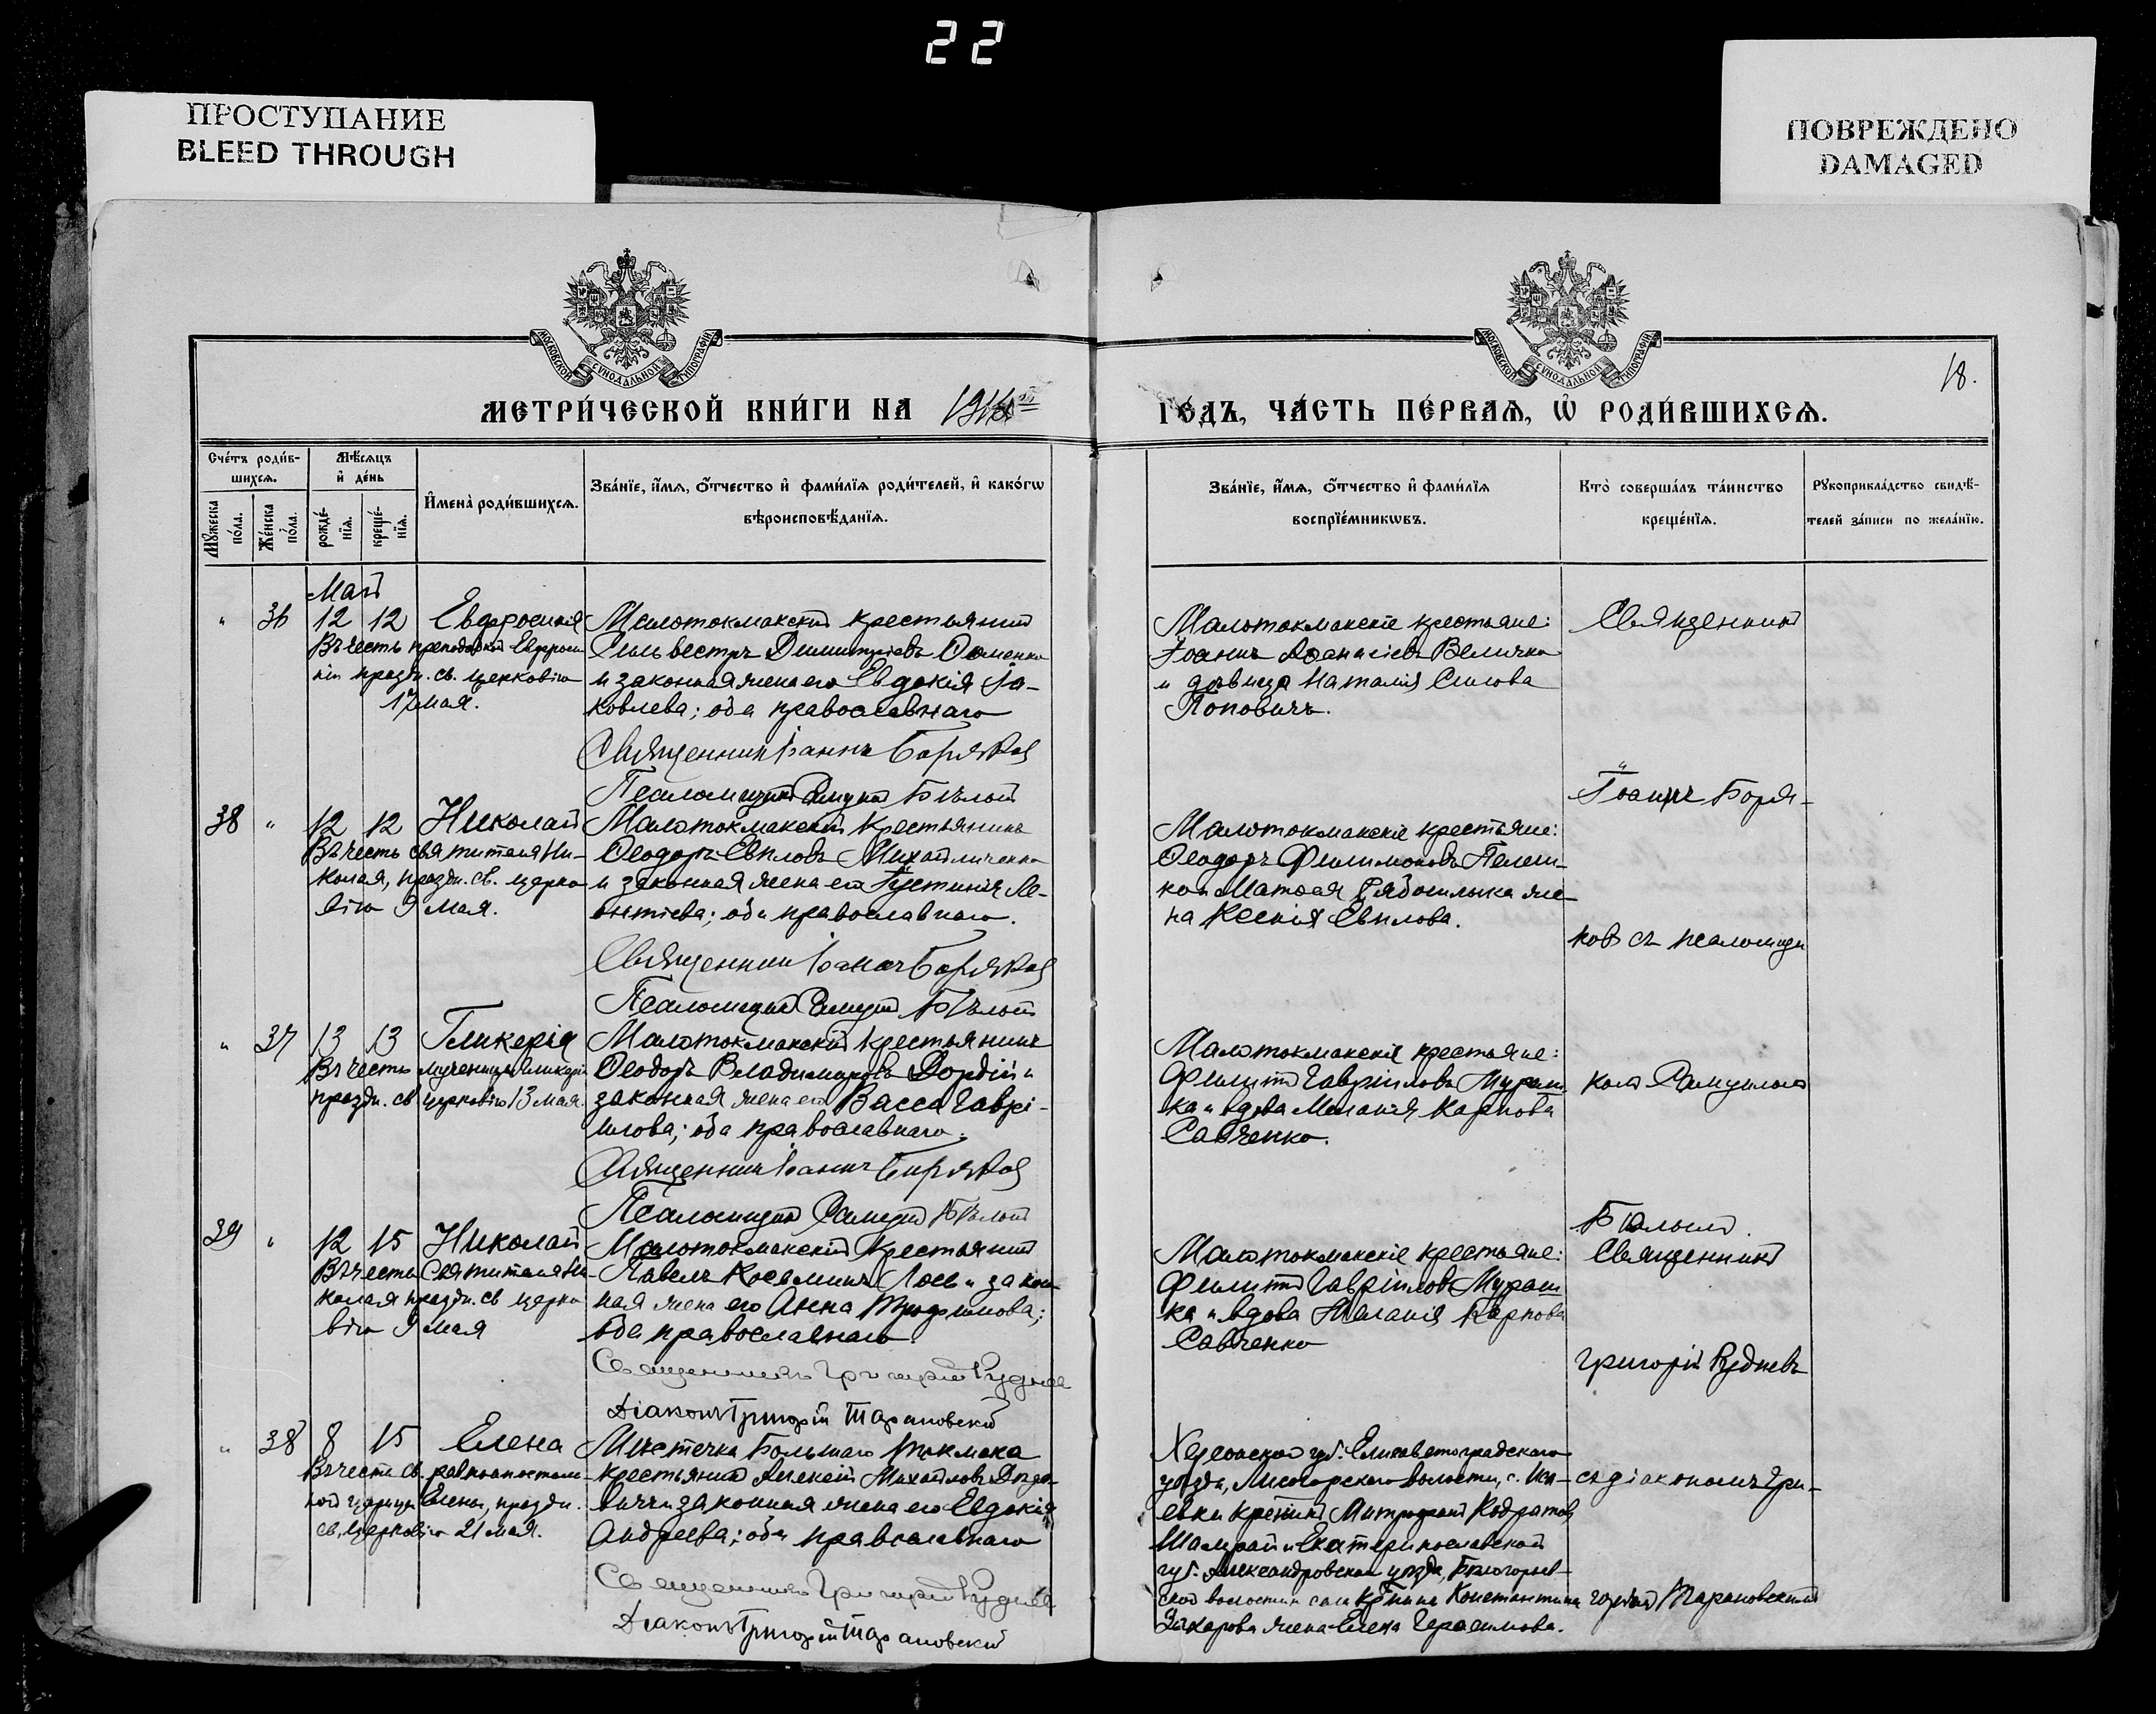 22
ПРОСТУПАНИЕ
BLEED THROUGH
ПОВРЕЖДЕНО
DAMAGED
МОСКОВСКОЙ СУНОДАЛЬНОЙ ТИПОГРАФІИ
МОСКОВСКОЙ СУНОДАЛЬНОЙ ТИПОГРАФІИ
18.
МЕТРИ́ЧЕСКОЙ КНИ́ГИ НА
ГО́ДЪ, ЧА́СТЬ ПЕ́РВАѦ, Ѡ҆ РОДИ́ВШИХСѦ.
Сче́тъ роди́в-
шихсѧ.
Мꙋ́жеска по́ла.
Же́нска по́ла.
Мѣ́сѧцъ
и҆ де́нь
рожде́-
нїѧ.
креще́-
нїѧ.
И҆мена̀ роди́вшихсѧ.
Зва́нїе, и҆́мѧ, ѻ҆́тчество и҆ фами́лїѧ роди́телей, и҆ како́гѡ
вѣроисповѣ́данїѧ.
Зва́нїе, и҆́мѧ, ѻ҆́тчество и҆ фами́лїѧ
воспрїе́мникѡвъ.
Кто̀ соверша́лъ та́инство
креще́нїѧ.
Рꙋкоприкла́дство свидѣ́-
телей за́писи по жела́нїю.
Май
" 36 12 12 Евфросинія
Въ честь преподобной Евфроси
ніи праздн. св. церковію
17 мая.
Малотокмакскій крестьянинъ
Сильвестръ Димитріевъ
и законная жена его Евдокія Іа-
ковлева; оба православнаго
Священникъ Іоаннъ Боряковъ
Псаломщикъ Самуилъ Бѣлый
Малотокмакскіе крестьяне:
Іоаннъ Аѳанасіевъ Величко
и дѣвица Наталія Силова
Поповичъ.
Священникъ
Іоаннъ Боря-
38 " 12 12 Николай
Въ честь святителя Ни-
колая, праздн. св. церко
вію 9 мая.
Малотокмакскій крестьянинъ
Ѳеодоръ Евпловъ Михайличенко
и законная жена его Іустинія Ле-
онтіева; оба православнаго.
Священникъ Іоаннъ Боряковъ
Псаломщикъ Самуилъ Бѣлый
Малотокмакскіе крестьяне:
Ѳеодоръ Филимоновъ
и Матѳея Рябошлыка же-
на Ксенія Евплова.
ковъ съ псаломщи
" 37 13 13 Гликерія
Въ честь мученицы Гликеріи
праздн. св. церковію 13 мая.
Малотокмакскій крестьянинъ
Ѳеодоръ Владиміровъ Дордій и
законная жена его Васса Гаврі-
илова; оба православнаго.
Священникъ Іоаннъ Боряковъ
Псаломщикъ Самуилъ Бѣлый
Малотокмакскіе крестьяне:
Филиппъ Гавріиловъ Мураш
ка и вдова Меланія Карпова
Савченко.
комъ Самуиломъ
Бѣлымъ.
39 " 12 15 Николай
Въ честь Святителя Ни-
колая праздн. св. церко
вію 9 мая
Малотокмакскій крестьянинъ
Павелъ Косьминъ Лось и закон
ная жена его Анна Трофимова;
оба православнаго.
Священникъ Григорій Рудневъ
Діаконъ Григорій Тарановскій
Малотокмакскіе крестьяне:
Филиппъ Гавріиловъ Мураш
ка и вдова Меланія Карпова
Савченко
Священникъ
Григорій Рудневъ
" 38 8 15 Елена
Въ честь св. равноапостоль-
ной царицы Елены, праздн.
св. церковію 21 мая.
Мѣстечка Большаго Токмака
крестьянинъ Алексѣй Михайловъ
и законная жена его Евдокія
Андреева; оба православнаго
Священникъ Григорій Рудневъ
Діаконъ Григорій Тарановскій
Херсонской губ. Елисаветоградскаго
уѣзда, волости, с.
Митрофанъ
и Екатеринославской
губ. Александровскаго уѣзда,
волости села Константина
Захарова жена Елена Герасимова.
съ діакономъ Гри-
горіемъ Тарановскимъ